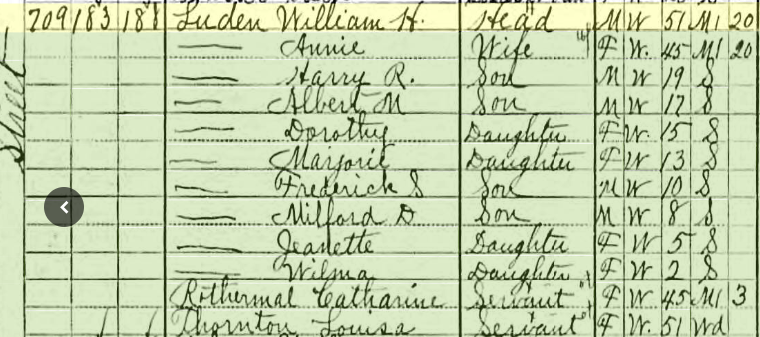 709 183 188 Luden William H. Head M W 51 M1 20
— Annie Wife F W. 45 M1 20
— Harry R. Son M W 19 S
— Albert M Son M W 17 S
— Dorothy Daughter F W. 15 S
— Marjorie Daughter F W 13 S
— Frederick S Son M W 10 S
— Milford D Son M W 8 S
— Jeanette Daughter F W 5 S
— Wilma Daughter F W 2 S
Rothermal Catharine Servant F W 45 M1 3
Thornton Louisa Servant F W. 51 Wd
Street